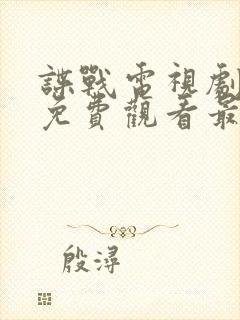 諜戰電視劇
免費觀看最
殷潯